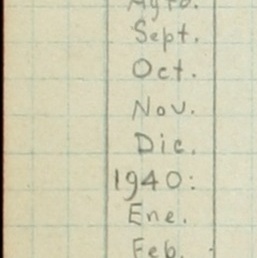 Agto.
Sept.
Oct.
Nov.
Dic.
1940:
Ene.
Feb.